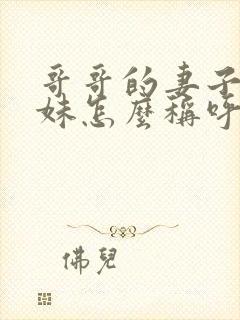 哥哥的妻子
妹怎麼稱呼
佛兒